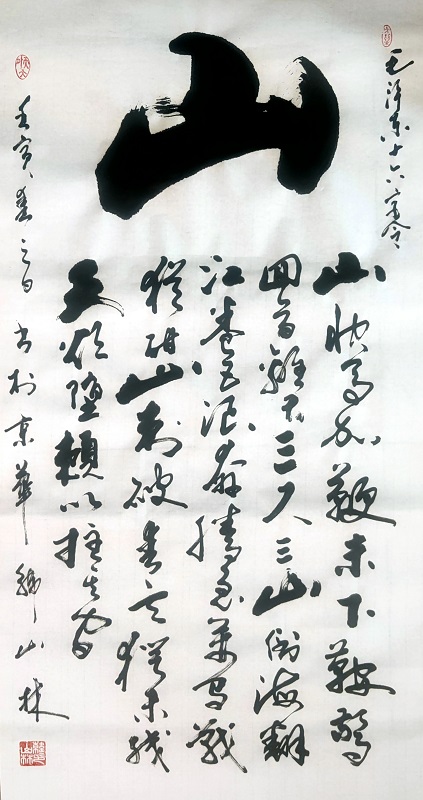 毛泽东十六字令
山
山快马加鞭未下鞍驚
回首離天三尺三山倒海翻
江卷巨浪奔腾急万马戰
猶酣山刺破青天锷未残
天欲墮賴以拄其间
壬寅春之日书於京華韩山林